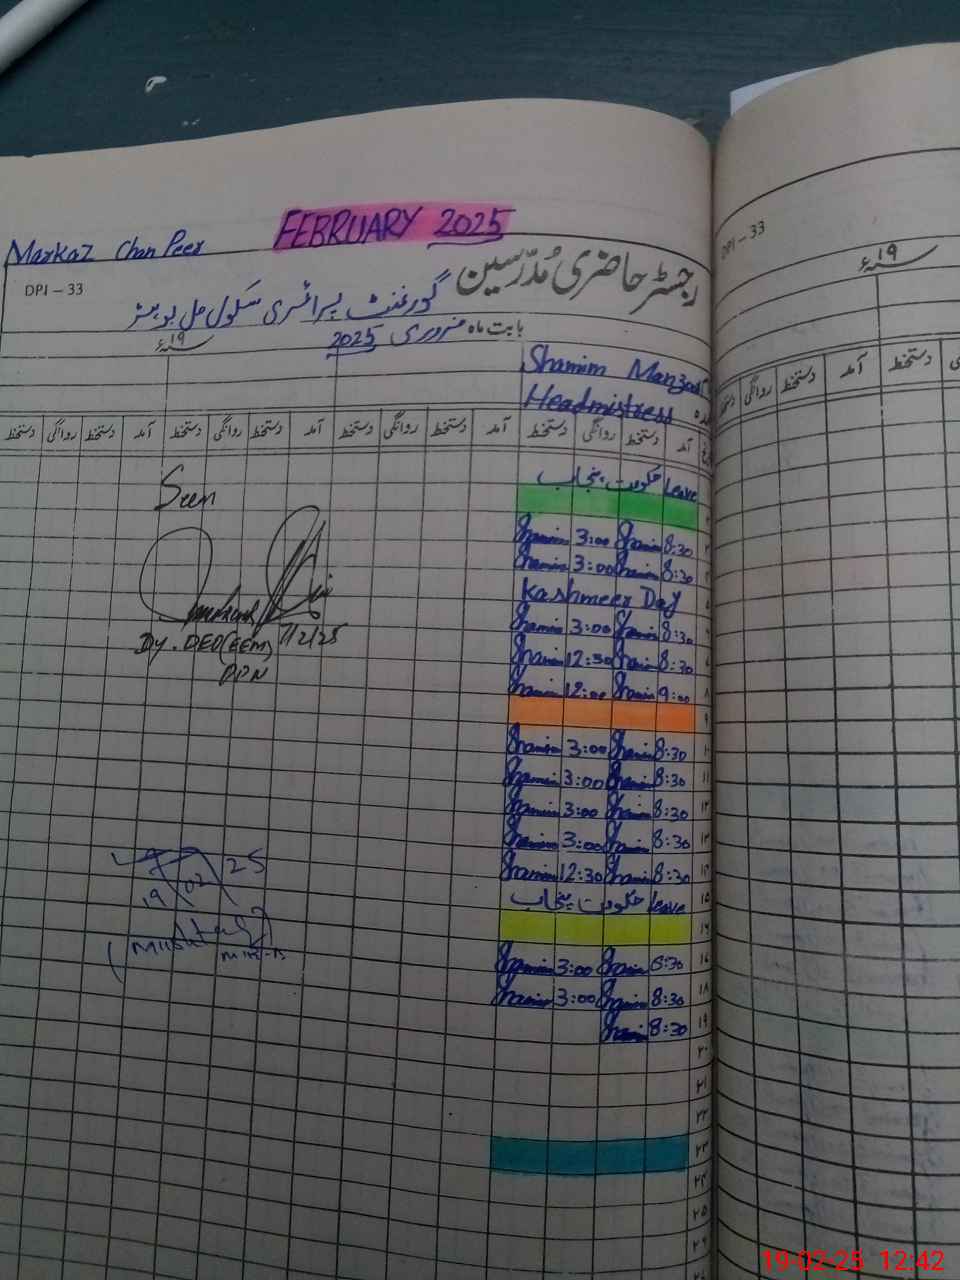 FEBRUARY 2025
Markaz Chan Peer
DPI – 33
رجسٹر حاضری مُدرّسین
گورنمنٹ پرائمری سکول
بابت ماہ فروری 2025
۱۹ سنہ ء
Shamim Manzoor
Headmistress
آمد دستخط روانگی دستخط آمد دستخط روانگی دستخط آمد دستخط روانگی دستخط آمد دستخط روانگی دستخط
Leave حکومت پنجاب
۲
۳ 8:30 Shamim 3:00 Shamim
۴ 8:30 Shamim 3:00 Shamim
۵ Kashmeer Day
۶ 8:30 Shamim 3:00 Shamim
۷ 8:30 Shamim 12:30 Shamim
۸ 9:00 Shamim 12:00 Shamim
۹
۱۰ 8:30 Shamim 3:00 Shamim
۱۱ 8:30 Shamim 3:00 Shamim
۱۲ 8:30 Shamim 3:00 Shamim
۱۳ 8:30 Shamim 3:00 Shamim
۱۴ 8:30 Shamim 12:30 Shamim
۱۵ leave حکومت پنجاب
۱۶
۱۷ 8:30 Shamim 3:00 Shamim
۱۸ 8:30 Shamim 3:00 Shamim
۱۹ 8:30 Shamim
۲۰
۲۱
۲۲
۲۳
۲۴
۲۵
۲۶
Seen
7/2/25
Dy. DEO (EEM)
PPN
19/02/25
(Mushtaq)
DPI – 33
۱۹ سنہ ء
دستخط آمد دستخط روانگی دستخط
19-02-25 12:42